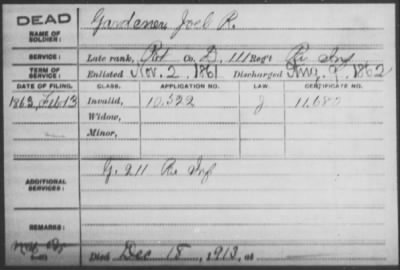 DEAD
NAME OF SOLDIER:
Gardener, Joel R.
SERVICE:
Late rank, Pvt Co. D, 111 Reg't Pa Inf
TERM OF SERVICE:
Enlisted Nov. 2, 1861 Discharged 9, 1862
DATE OF FILING. CLASS. APPLICATION NO. LAW. CERTIFICATE NO.
1863, Feb 13 Invalid, 10,322 J 11,680
Widow,
Minor,
ADDITIONAL SERVICES:
G. 211 Pa Inf
REMARKS:
Died Dec 18, 1913, at